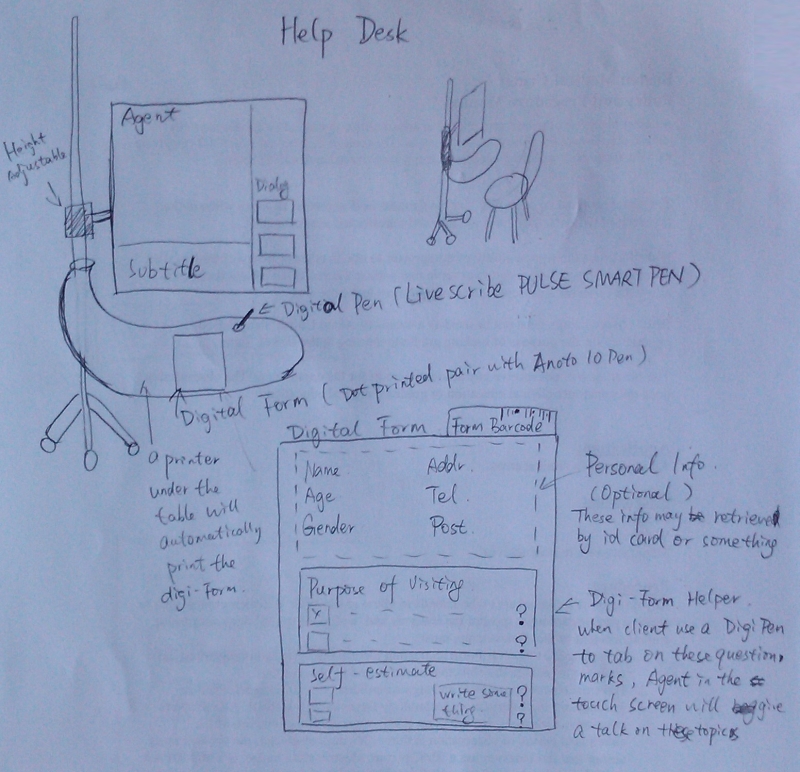 Help Desk
Agent
Height
adjustable
Dialog
Subtitle
Digital Pen (Livescribe PULSE SMART PEN)
Digital Form (Dot printed pair with Anoto 10 Pen)
a printer
under the
table will
automatically
print the
digi-Form.
Digital Form
Form Barcode
Name Addr.
Age Tel.
Gender Post.
Personal Info.
(Optional)
These info may be retrieved
by id card or something
Purpose of Visiting
x ?
?
Self-estimate
write some
thing
?
?
Digi-Form Helper.
when client use a DigiPen
to tab on these question
marks, Agent in the
touch screen will give
a talk on these topics